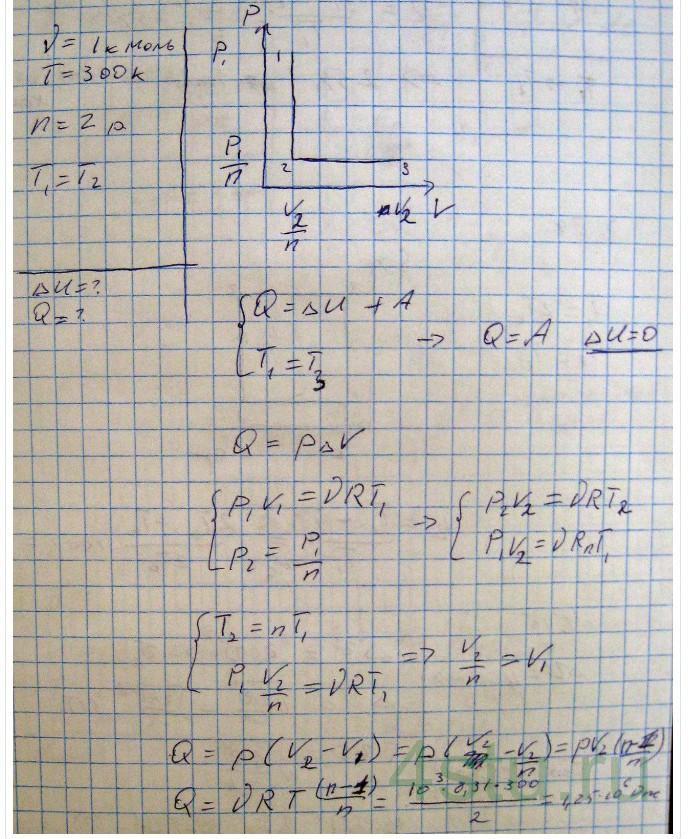 ν = 1 кмоль
T = 300 К
n = 2 р
T₁ = T₂
ΔU = ?
Q = ?
P
P₁ 1
P₁/n 2 3
V₂/n V₂ V
{ Q = ΔU + A
{ T₁ = T₃ → Q = A ΔU = 0
Q = pΔV
{ P₁V₁ = νRT₁ → { P₂V₂ = νRT₂
{ P₂ = P₁/n { P₁V₂ = νRnT₁
{ T₂ = nT₁
{ P₁ V₂/n = νRT₁ => V₂/n = V₁
Q = p(V₂ - V₁) = p(V₂ - V₂/n) = pV₂(n-1/n)
Q = νRT (n-1)/n = 10³·8,31·300/2 = 1,25·10⁶ Дж